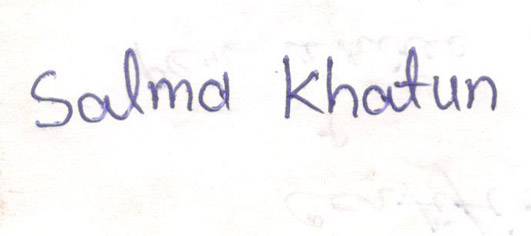 Salma Khatun